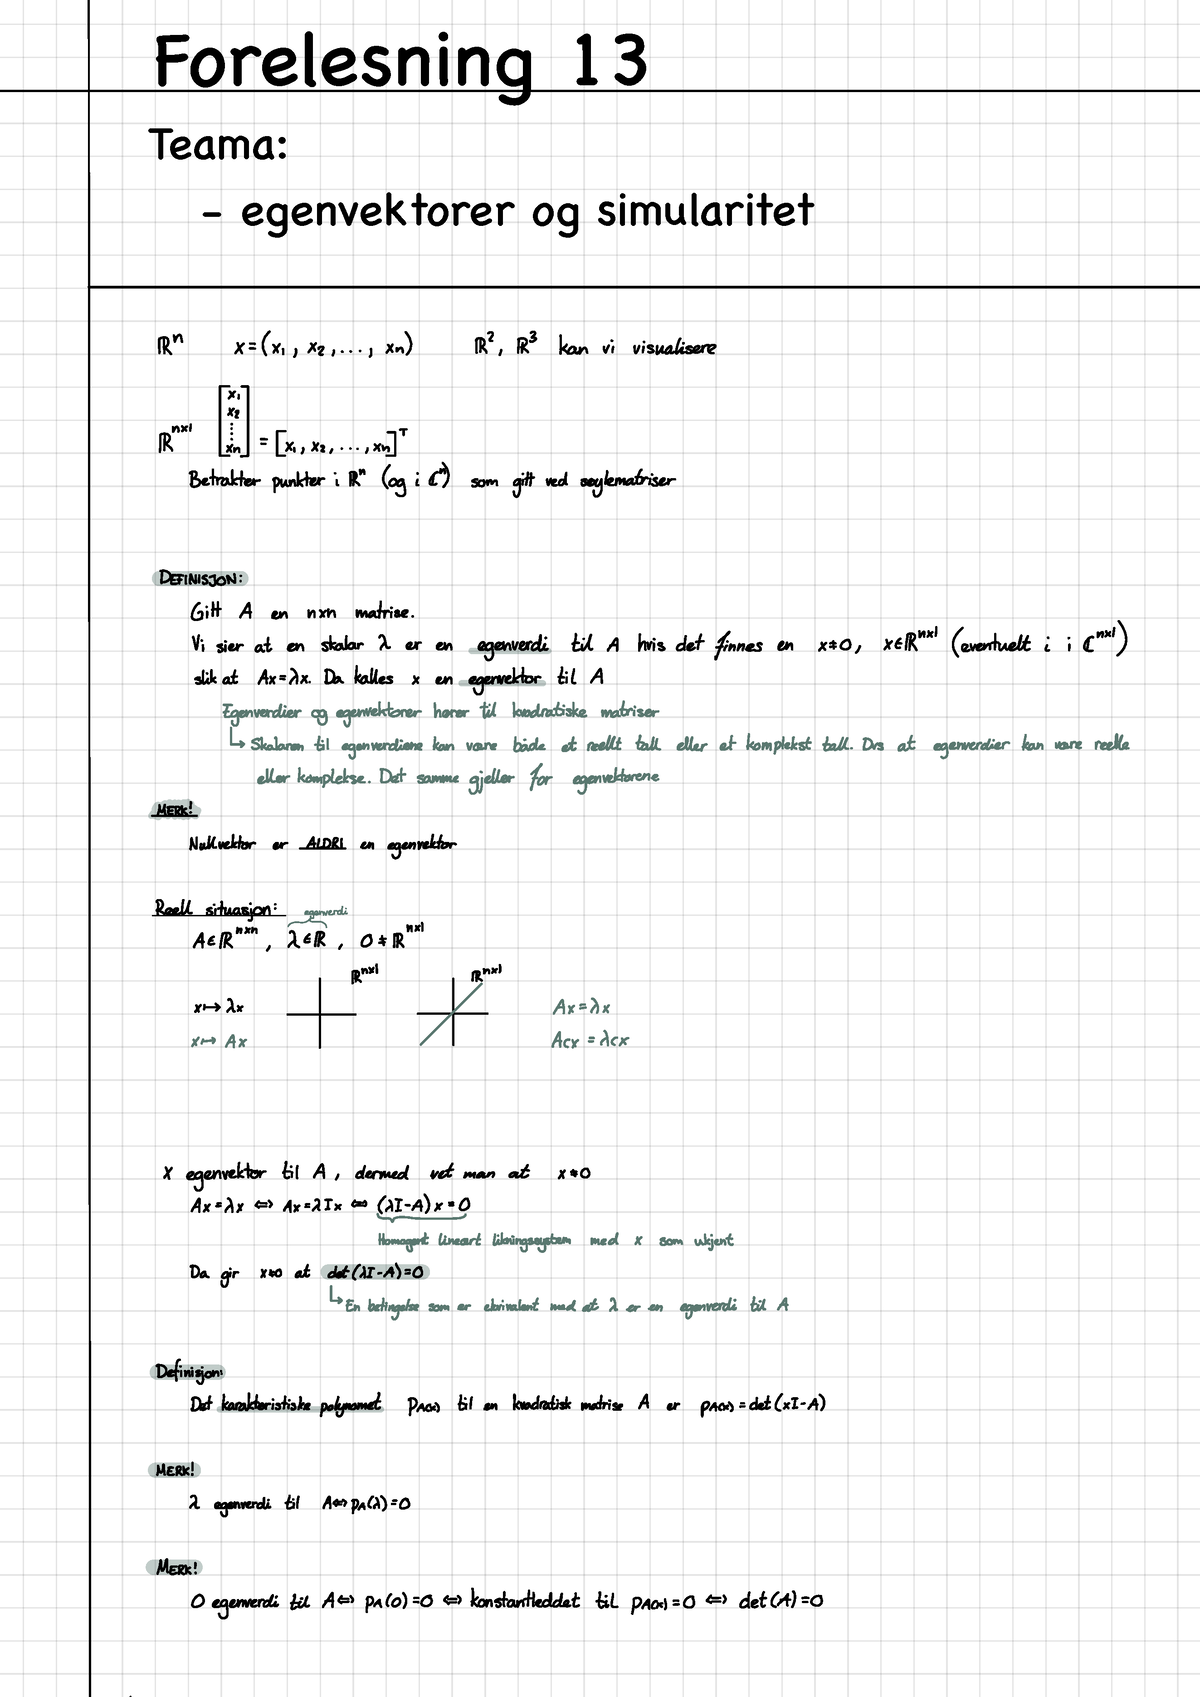 Forelesning 13
Teama:
- egenvektorer og simularitet
ℝⁿ x=(x₁, x₂, ..., xₙ) ℝ², ℝ³ kan vi visualisere
ℝⁿˣ¹ [x₁ x₂ ⋮ xₙ] = [x₁, x₂, ..., xₙ]ᵀ
Betrakter punkter i ℝⁿ (og i ℂⁿ) som gitt ved søylematriser
DEFINISJON:
Gitt A en nxn matrise.
Vi sier at en skalar λ er en egenverdi til A hvis det finnes en x≠0, x∈ℝⁿˣ¹ (eventuelt i i ℂⁿˣ¹)
slik at Ax=λx. Da kalles x en egenvektor til A
Egenverdier og egenvektorer hører til kvadratiske matriser
↳ Skalaren til egenverdiene kan være både et reellt tall eller et komplekst tall. Dvs at egenverdier kan være reelle
eller komplekse. Det samme gjeller for egenvektorene
MERK!
Nullvektor er ALDRI en egenvektor
Reell situasjon: egenverdi
A∈ℝⁿˣⁿ, λ∈ℝ, 0≠ℝⁿˣ¹
ℝⁿˣ¹ ℝⁿˣ¹
x↦λx Ax=λx
x↦Ax Acx=λcx
X egenvektor til A, dermed vet man at x≠0
Ax=λx ⇔ Ax=λIx ⇔ (λI-A)x=0
Homogent lineært likningssystem med x som ukjent
Da gir x≠0 at det(λI-A)=0
↳ En betingelse som er ekvivalent med at λ er en egenverdi til A
Definisjon:
Det karakteristiske polynomet p_A(x) til en kvadratisk matrise A er p_A(x)=det(xI-A)
MERK!
λ egenverdi til A⇔p_A(λ)=0
MERK!
0 egenverdi til A⇔ p_A(0)=0 ⇔ konstantleddet til p_A(x)=0 ⇔ det(A)=0